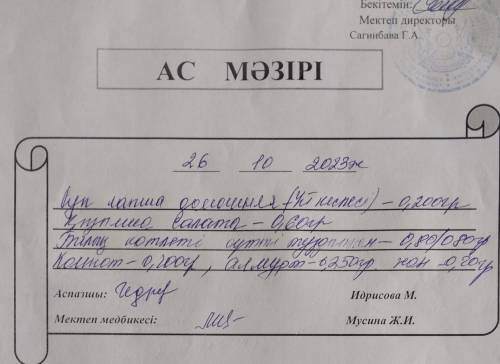 Бекітемін:
Мектеп директоры
Сагинбаева Г.А.
АС МӘЗІРІ
26 10 2023ж
Суп лапша домашняя (Үй кеспесі) – 0,200гр
салата – 0,60гр
котлеті сүтті – 0,80/0,80гр
Компот – 0,200гр, алмұрт – 0,250гр, нан – 0,20гр
Аспазшы: Идрисова М.
Мектеп медбикесі: Мусина Ж.И.